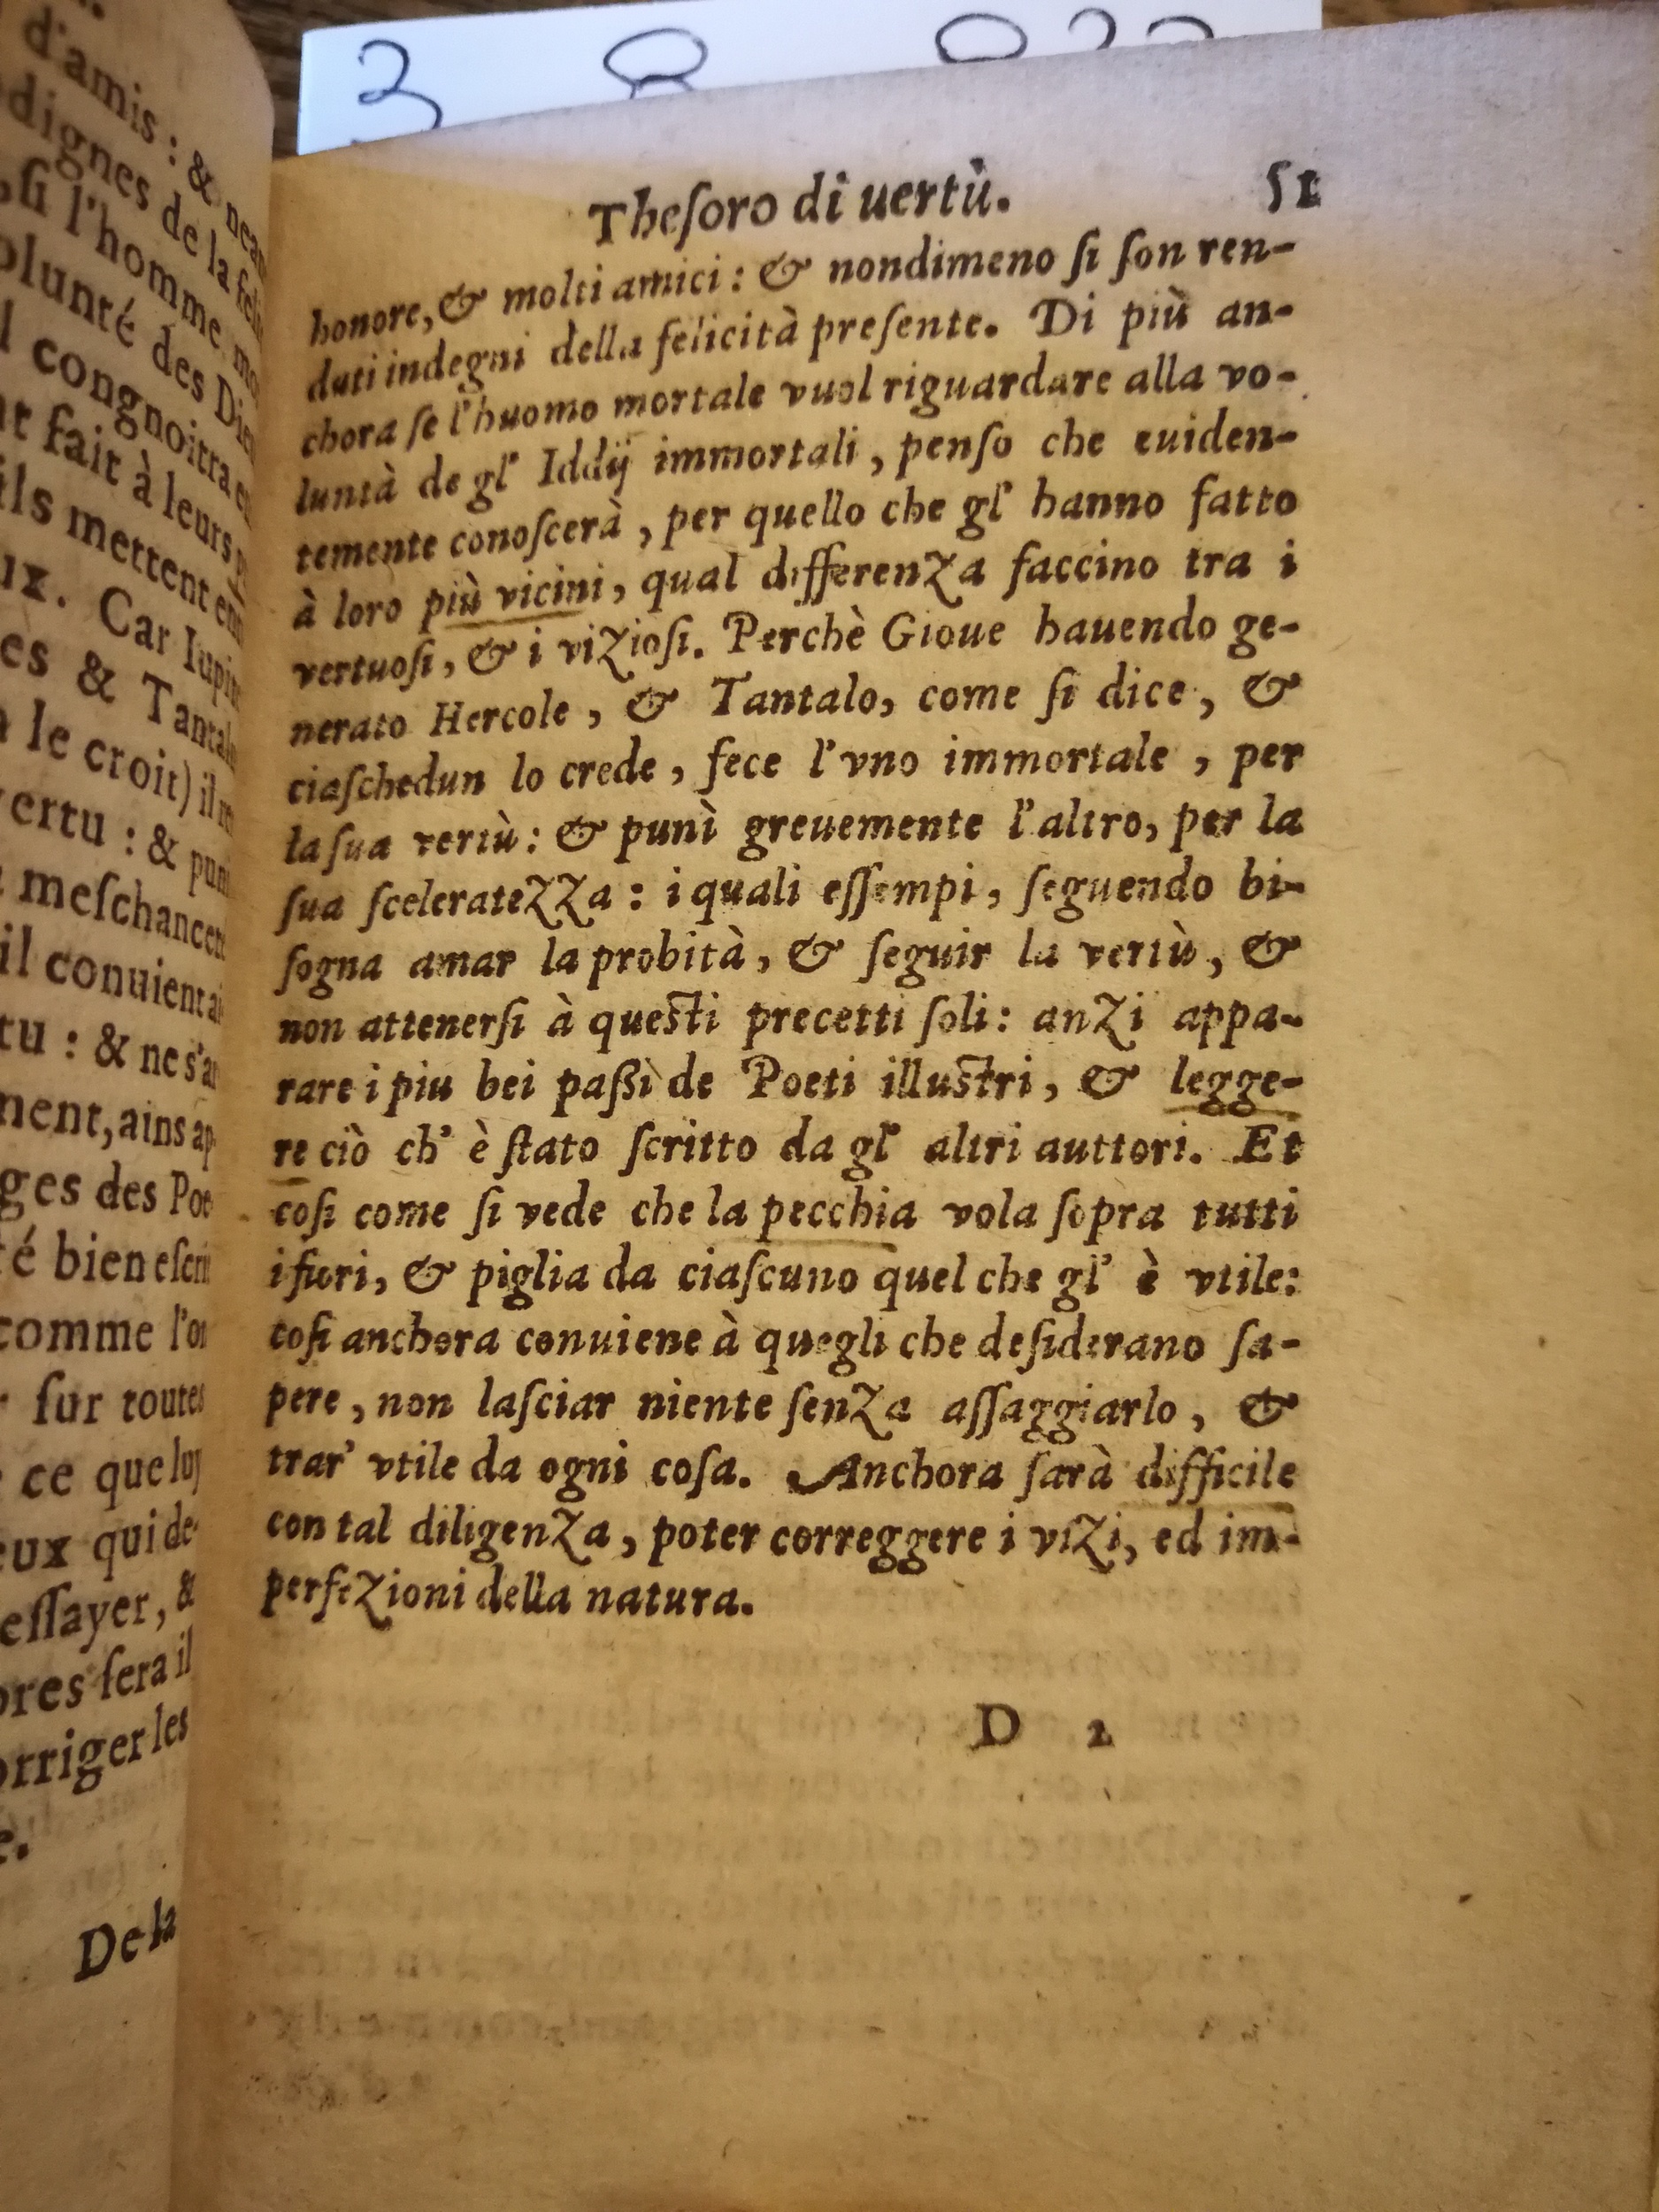 d'amis : & nean
dignes de la feli
si l'homme mo
olunté des Dieu
l congnoitra
t fait à leurs
ils mettent en
ux. Car Iupi
es & Tantal
le croit) il
vertu : & puni
meſchancet
il conuient
tu : & ne s'a
ment, ains ap
ges des Poe
é bien eſcri
comme l'o
ſur toutes
ce que luy
eux qui de-
eſſayer, &
ſera il
orriger les
e.
De la
3 8
Theſoro di uertù. 51
honore, & molti amici: & nondimeno ſi ſon ren-
duti indegni della felicità preſente. Di più an-
chora ſe l'huomo mortale vuol riguardare alla vo-
luntà de gl' Iddÿ immortali, penſo che euiden-
temente conoſcerà, per quello che gl' hanno fatto
à loro più vicini, qual differenza faccino tra i
vertuoſi, & i vizioſi. Perchè Gioue hauendo ge-
nerato Hercole, & Tantalo, come ſi dice, &
ciaſchedun lo crede, fece l'vno immortale, per
la ſua vertù: & punì greuemente l'altro, per la
ſua ſceleratezza: i quali eſſempi, ſeguendo bi-
ſogna amar la probità, & ſeguir la vertù, &
non attenerſi à queſti precetti ſoli: anzi appa-
rare i piu bei paßi de Poeti illuſtri, & legge-
re ciò ch' è ſtato ſcritto da gl' altri auttori. Et
coſi come ſi vede che la pecchia vola ſopra tutti
i fiori, & piglia da ciaſcuno quel che gl' è vtile:
coſi anchora conuiene à quegli che deſiderano ſa-
pere, non laſciar niente ſenza aſſaggiarlo, &
trar' vtile da ogni coſa. Anchora ſarà difficile
con tal diligenza, poter correggere i vizi, ed im-
perfezioni della natura.
D 2